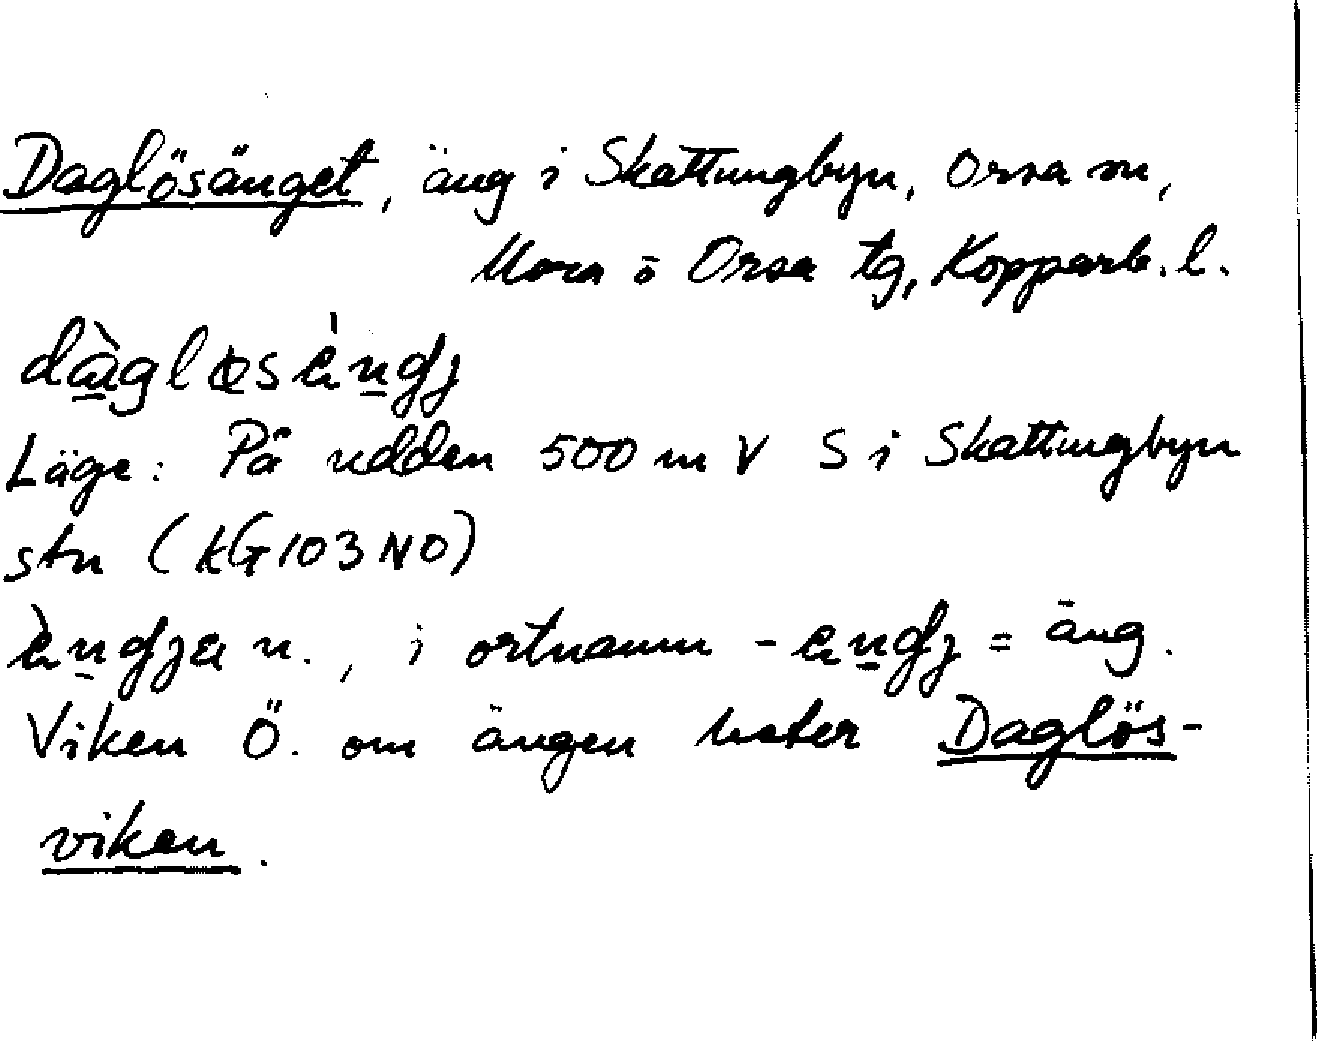 Daglösänget, äng i Skattungbyn, Orsa sn,
Mora o Orsa tg, Kopparb. l.
Läge: På udden 500 m V S i Skattungbyn
stn (KG103NO)
n., i ortnamn = äng.
Viken Ö. om ängen heter Daglös-
viken.